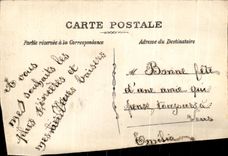 CARTE POSTALE
Partie réservée à la Correspondance
Adresse du Destinataire
À vous
mes souhaits les
plus sincères et
mes meilleurs baisers
Bonne fête
d'une amie qui
pense toujours à
vous
Emilia